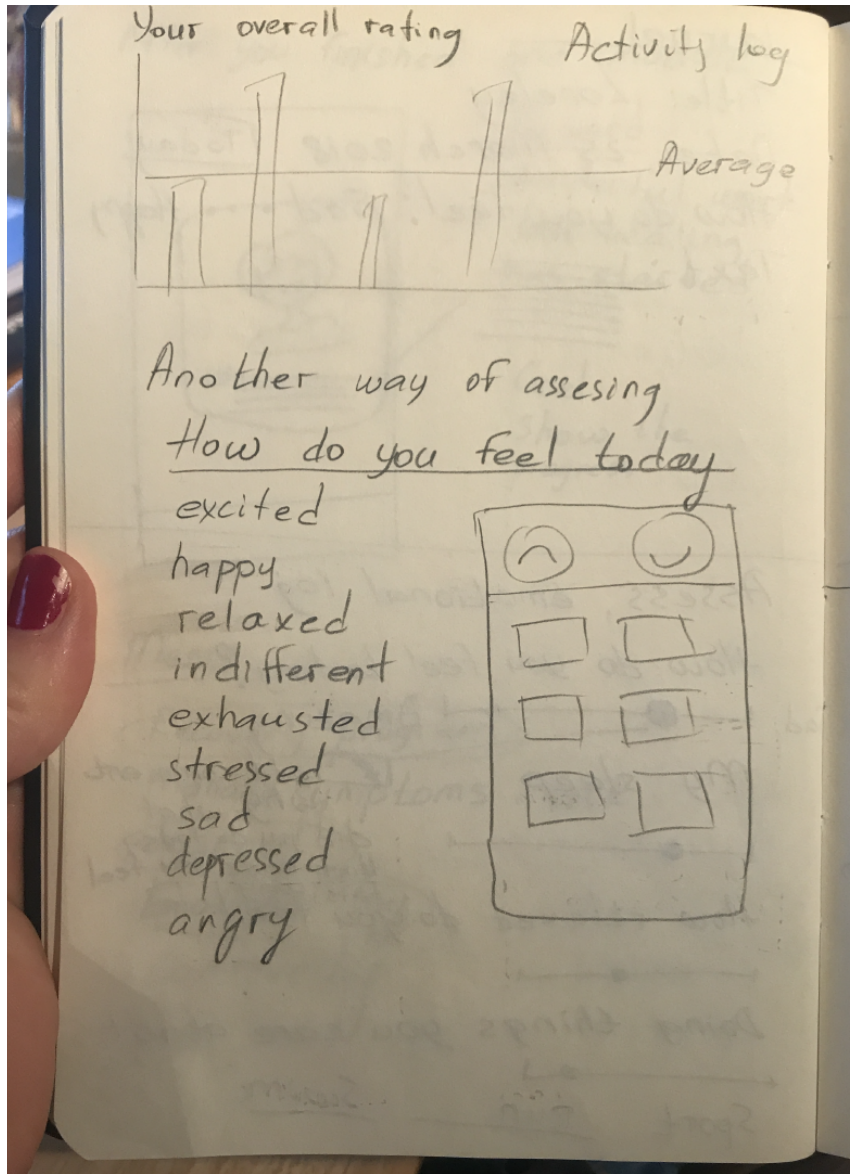 Your overall rating
Activity log
Average
Another way of assesing
How do you feel today
excited
happy
relaxed
indifferent
exhausted
stressed
sad
depressed
angry